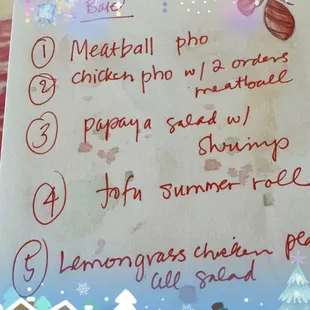 ① Meatball pho
② chicken pho w/ 2 orders
meatball
③ papaya salad w/
shrimp
④ tofu summer roll
⑤ Lemongrass chicken
all salad